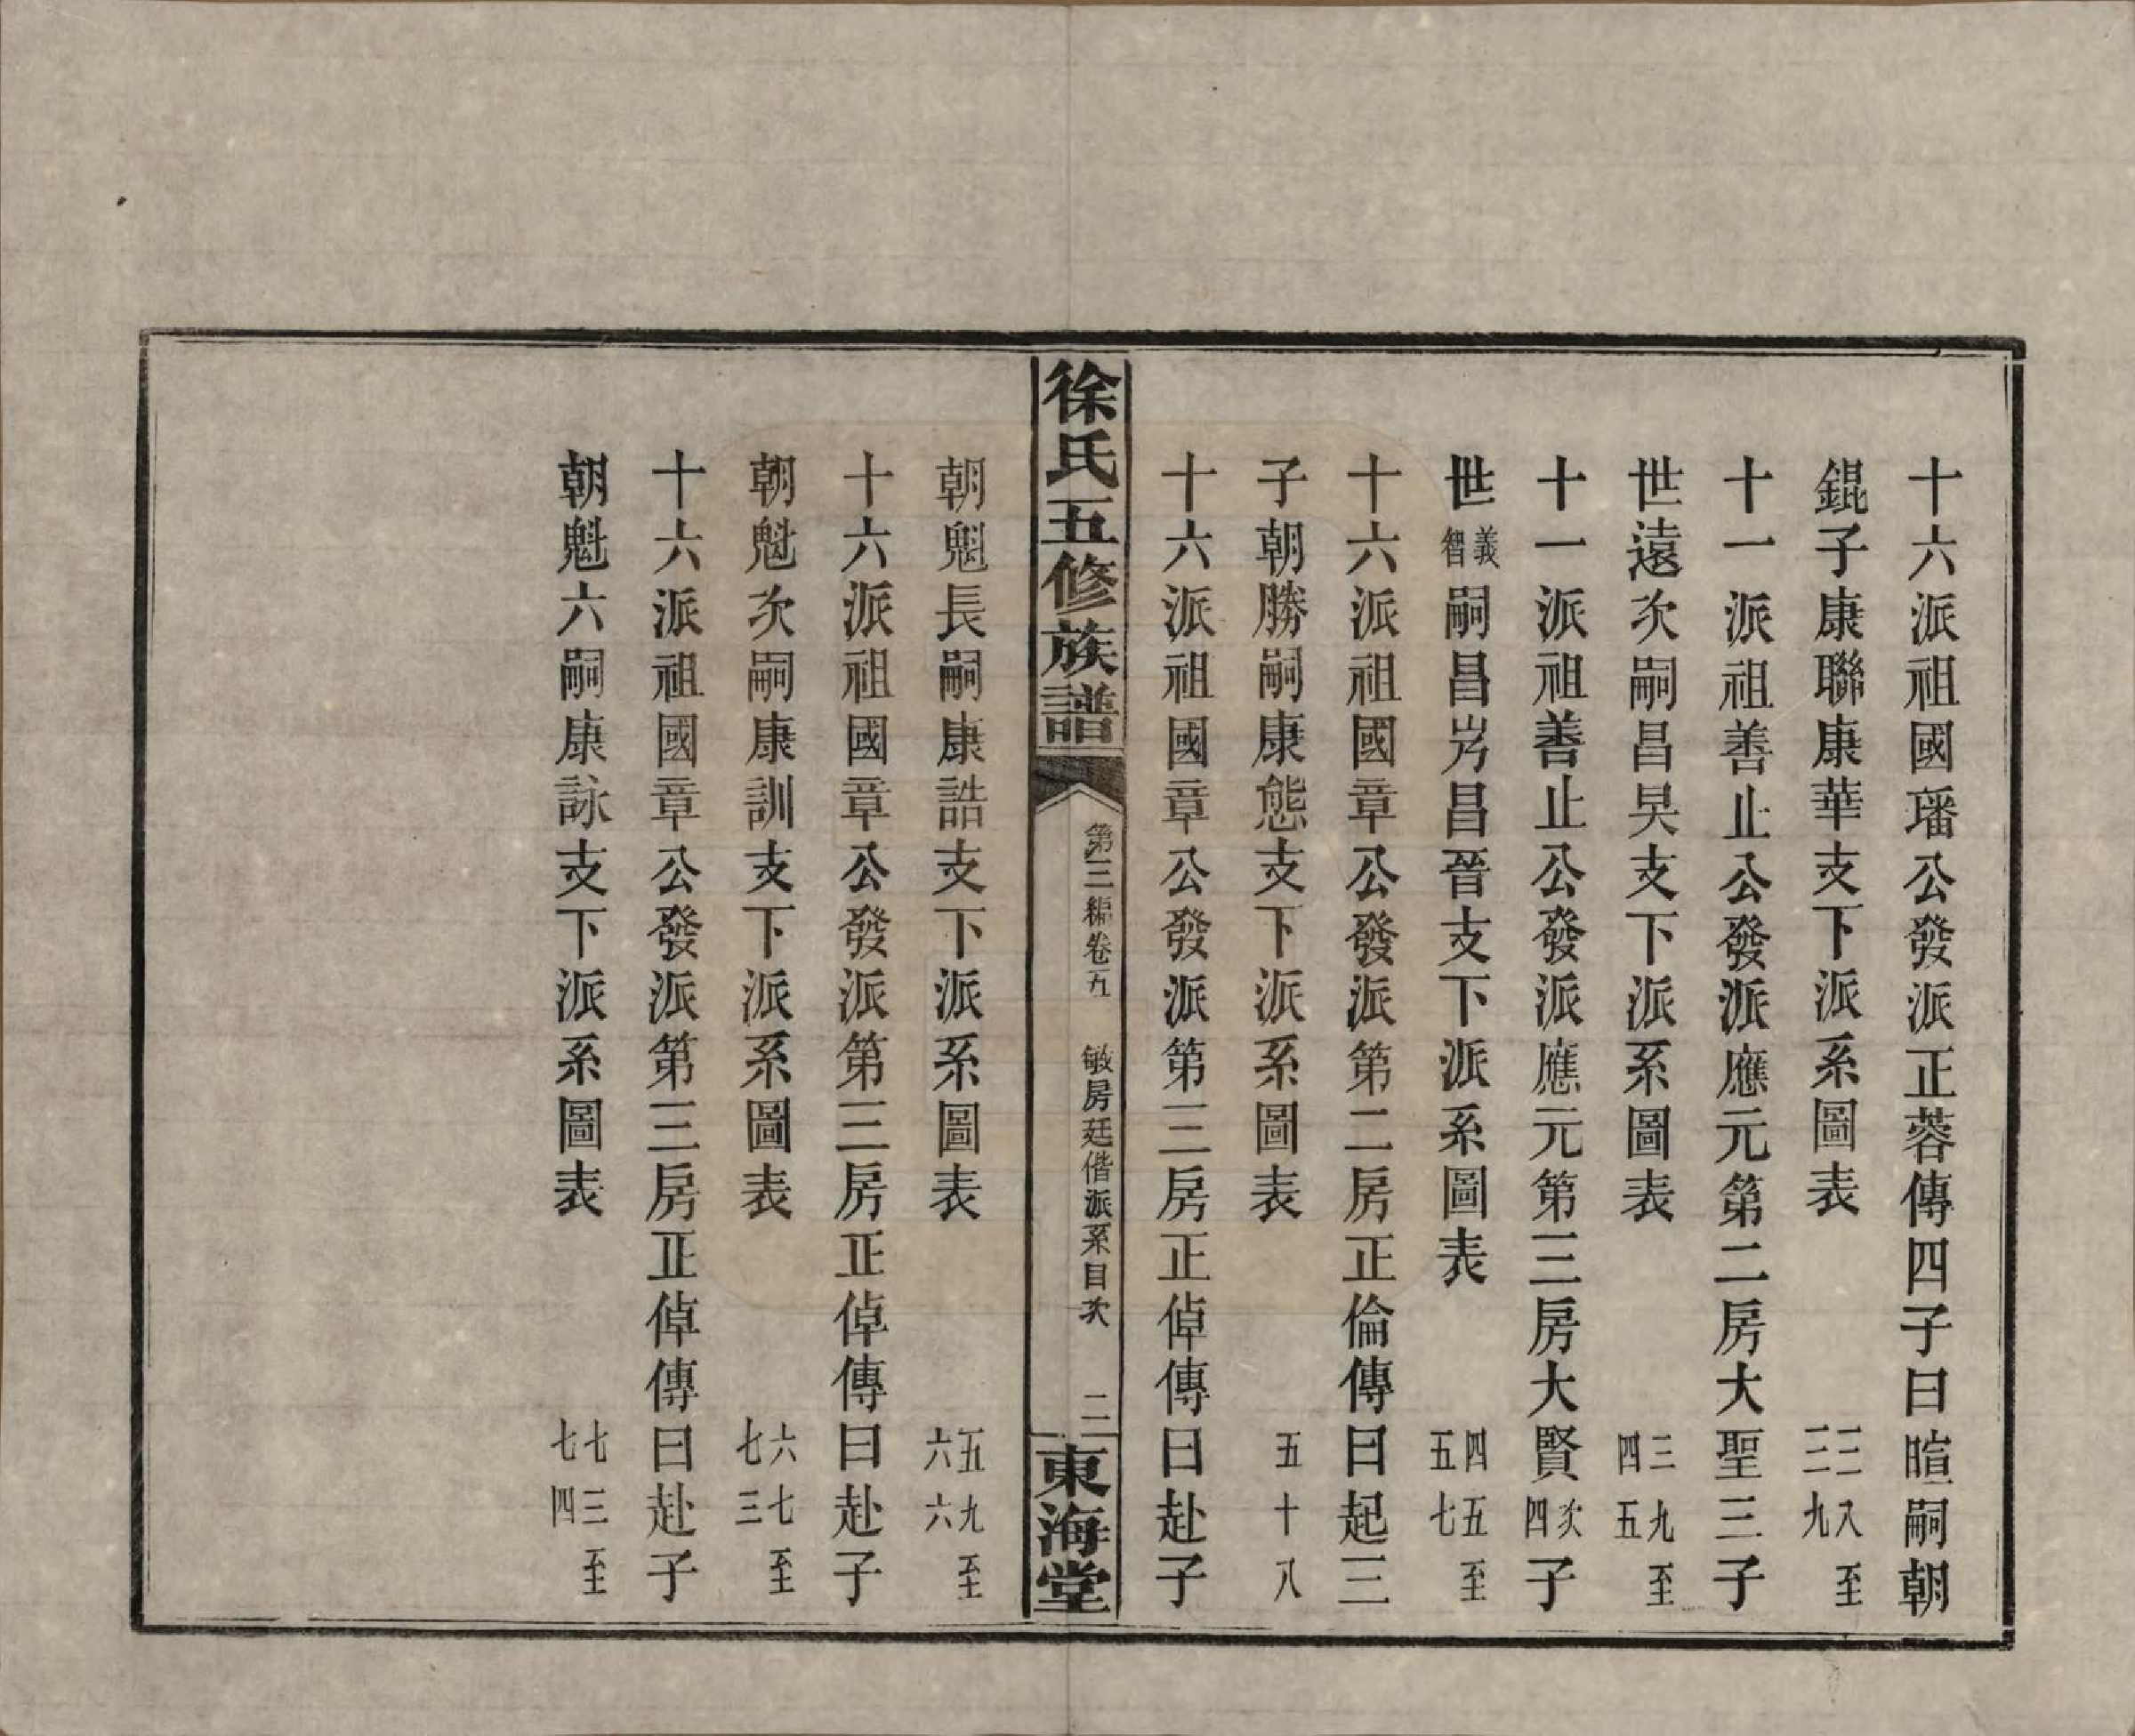 十六派祖國璠公發派正蓉傳四子曰暄嗣朝
錕子康聯康華支下派系圖表 二八至二九
十一派祖善止公發派應元第二房大聖三子
世遠次嗣昌昊支下派系圖表 三九至四五
十一派祖善止公發派應元第三房大賢次四子
世義智嗣昌岃昌晉支下派系圖表 四五至五七
十六派祖國章公發派第二房正倫傳曰起三
子朝勝嗣康態支下派系圖表 五十八
十六派祖國章公發派第三房正倬傳曰赴子
徐氏五修族譜 第三編卷九 敏房廷偕派系目次 二 東海堂
朝魁長嗣康誥支下派系圖表 五九至六六
十六派祖國章公發派第三房正倬傳曰赴子
朝魁次嗣康訓支下派系圖表 六七至七三
十六派祖國章公發派第三房正倬傳曰赴子
朝魁六嗣康詠支下派系圖表 七三至七四